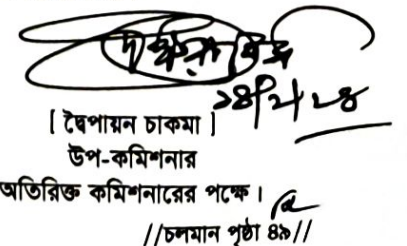 ১৪/২/২৪
[ দ্বৈপায়ন চাকমা ]
উপ-কমিশনার
অতিরিক্ত কমিশনারের পক্ষে।
//চলমান পৃষ্ঠা ৪৯//